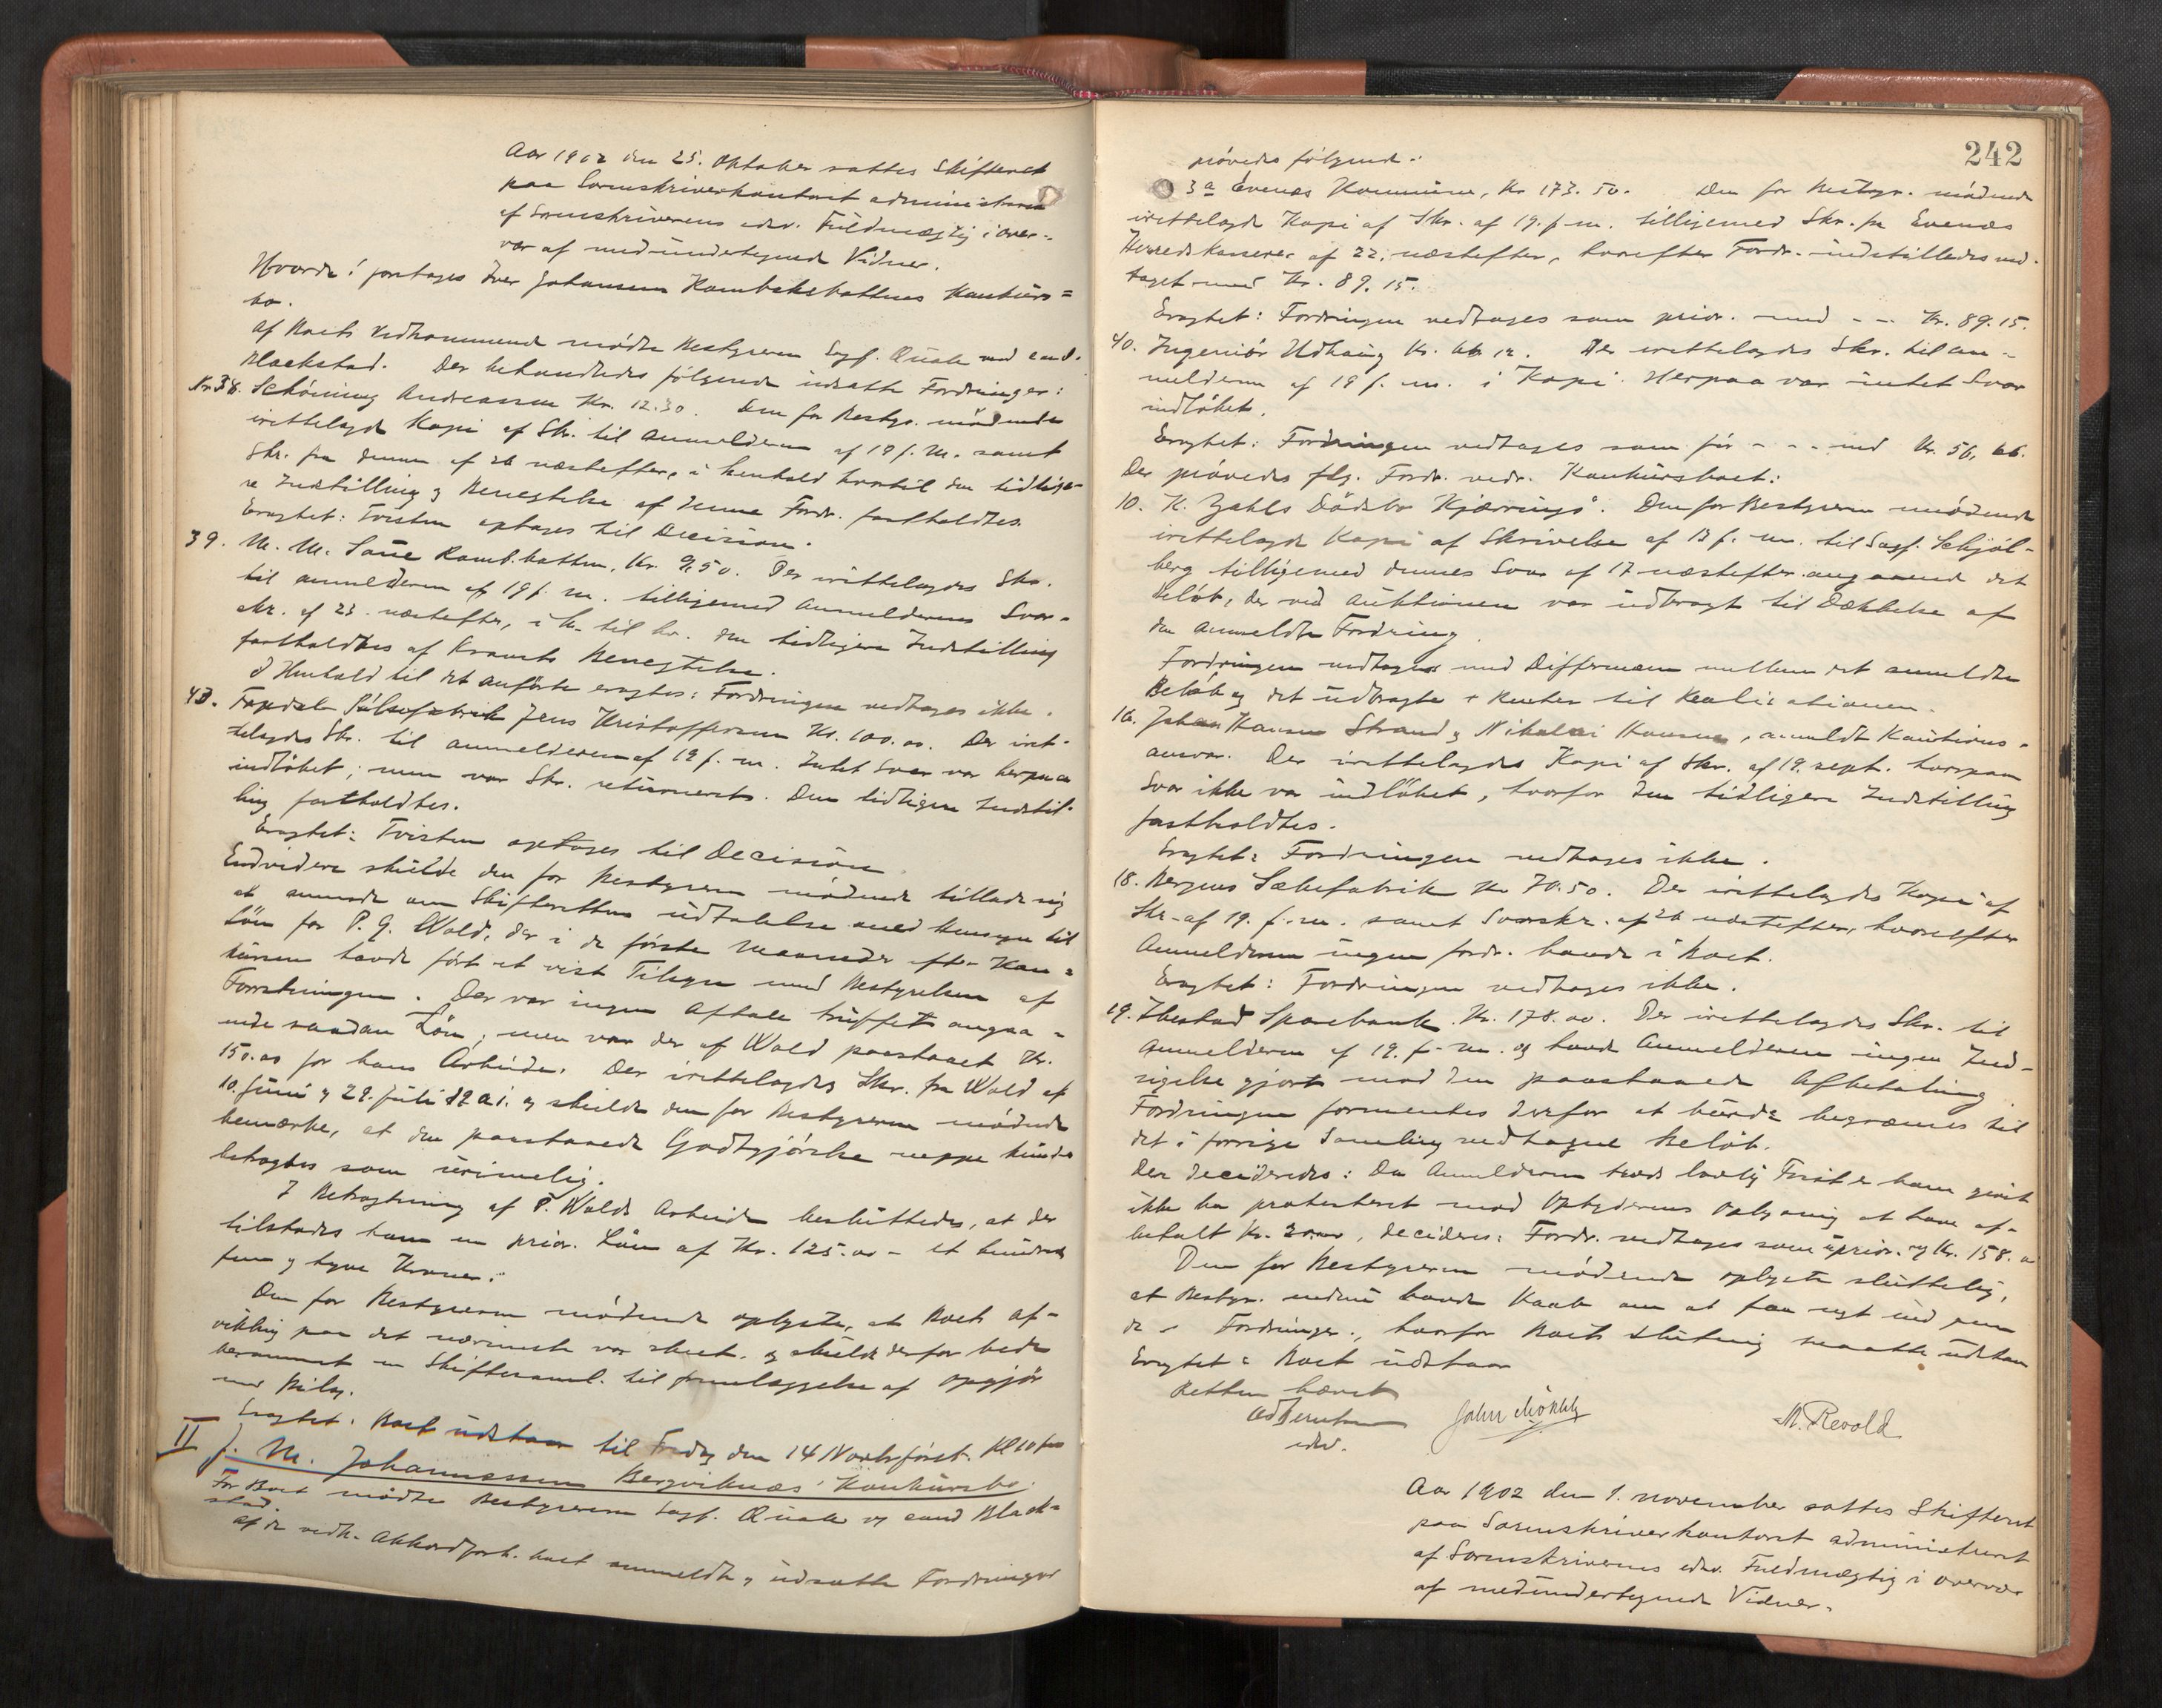 Aar 1902 den 25. Oktober sattes Skifteret
paa Sorenskriverkontoret administreret
af Sorenskriverens edsv. Fuldmægtig i over-
vær af medundertegnede Vidner.
Hvorda! foretoges Iver Johansen Rombaksbottens Konkurs=
bo.
Af Boets Vedkommende mødte Bestyreren Sagf. Quale med cand.
Blackstad. Der behandledes følgende udsatte Fordringer:
No. 38. Schöning Andreassen Kr. 12.30. Den for Bestyr. mødende
irettelagde Kopi af Skr. til Anmelderen af 19 f. M. samt
Skr. fra denne af 26 næstefter, i Henhold hvortil den tidlige-
re Indstilling og Benegtelse af denne Fordr. fastholdtes.
Eragtet: Tvisten optages til Decision.
39. M. M. Saue Romb.botten, Kr. 9,50. Der irettelagdes Skr.
til anmelderen af 19 f. m. tilligemed Anmelderens Svar-
skr. af 23. næstefter, i h. til hv. den tidligere Indstilling
fastholdtes af Kravets Benegtelse.
I Henhold til det anførte eragtes: Fordringen vedtages ikke.
43. Pølsefabrik Jens Kristoffersen Kr. 100.00. Der iret-
telagdes Skr. til anmelderen af 19 f. m. Intet Svar var herpaa
indløbet; men var Skr. returneret. Den tidligere Indstil-
ling fastholdtes.
Eragtet: Tvisten optages til Decision.
Endvidere skulde den for Bestyreren mødende tillade sig
at anmode om Skifterettens udtalelse med Hensyn til
Løn for P. G. Wold, der i de første Maaneder efter Kon=
kursen havde ført et vist Tilsyn med Bestyrelsen af
Forretningen. Der var ingen Aftale truffet angaa-
ende saadan Løn, men var der af Wold paastaaet Kr.
150.00 for hans Arbeide. Der irettelagdes Skr. fra Wold af
10. Juni og 29. Juli d. a. og skulde den for Bestyreren mødende
bemærke, at den paastaaede Godtgjørelse neppe kunde
betragtes som urimelig.
I Betragtning af P. Wolds Arbeide besluttedes, at der
tilstodes ham en prior. Løn af Kr. 125.00 - et hundrede
fem og tyve Kroner.
Den for Bestyreren mødende oplyste, at Boets Af-
vikling paa det nærmeste var skeet. og skulde derfor bede
berammet en Skiftesaml. til fremlæggelse af opgjør
med Bilag.
Eragtet: Boet udstaar til Fredag den 14 Novbr. førstk. Kl 10 fm
II J. M. Johannessen Bergviknæs' Konkursbo.
For Boet mødte Bestyreren Sagf. Quale og cand Black=
stad.
Af de vedk. Akkordforh. boet anmeldte og udsatte Fordringer
242
prøvedes følgende:
3a Evenæs Kommune, Kr. 173.50. Den for Bestyr. mødende
irettelagde Kopi af Skr. af 19. f. m. tilligemed Skr. fra Evenæs
Herredskasserer af 22. næstefter, hvorefter Fordr. indstilledes ved-
taget med Kr. 89.15.
Eragtet: Fordringen vedtages som prior. med - - Kr. 89.15.
40. Ingeniør Kr. 66 12. Der irettelagdes Skr. til an-
melderen af 19 f. m. i Kopi. Herpaa var intet Svar
indløbet.
Eragtet: Fordringen vedtages som - - - med Kr. 56,66.
Der prøvedes flg. Fordr. vedr. Konkursboet:
10. K. Zahls Dødsbo Kjæringø. Den for Bestyreren mødende
irettelagde Kopi af Skrivelse af 13 f. m. til Sagf. Schjøl-
berg tilligemed dennes Svar af 17 næstefter angaaende det
Beløb, der ved Auktionen var udbragt til Dækkelse af
den anmeldte Fordring.
Fordringen vedtages med Differensen mellem det anmeldte
Beløb og det udbragte + Renter til Realisationen.
16. Johan Hansen Strand og Nikolai Hansen, anmeldt Kautions-
ansvar. Der irettelagdes Kopi af Skr. af 19. sept. hvorpaa
Svar ikke var indløbet, hvorfor den tidligere Indstilling
fastholdtes.
Eragtet: Fordringen vedtages ikke.
18. Bergens Sækefabrik Kr 70.50. Der irettelagdes Kopi af
Skr. af 19. f. m. samt Svarskr. af 26 næstefter, hvorefter
Anmelderen ingen fordr. havde i Boet.
Eragtet: Fordringen vedtages ikke.
19. Ibestad Sparebank. Kr. 178.00. Der irettelagdes Skr. til
Anmelderen af 19. f. m. og havde Anmelderen ingen Ind-
sigelse gjort mod den paastaaede Afbetaling
Fordringen formentes derfor at burde begrænses til
det i forrige Samling vedtagne Beløb.
Der decideredes: Da Anmelderen trods lovlig Frist er ham givet
ikke har protesteret mod Opbyderens Oplysning at have af-
betalt Kr. 20.00, decideres: Fordr. vedtages som uprior. og Kr. 158.00
Den for Bestyreren mødende oplyste sluttelig,
at Bestyr. endnu havde Haab om at faa nyt ind paa
de - Fordringer, hvorfor Boets slutning maatte udstaa
Eragtet: Boet udstaar
Retten hævet
edsv.
John
M. Revold
Aar 1902 den 1. november sattes Skifteret
paa Sorenskriverkontoret administreret
af Sorenskriverens edsv. Fuldmægtig i overvær
af medundertegnede Vidner.